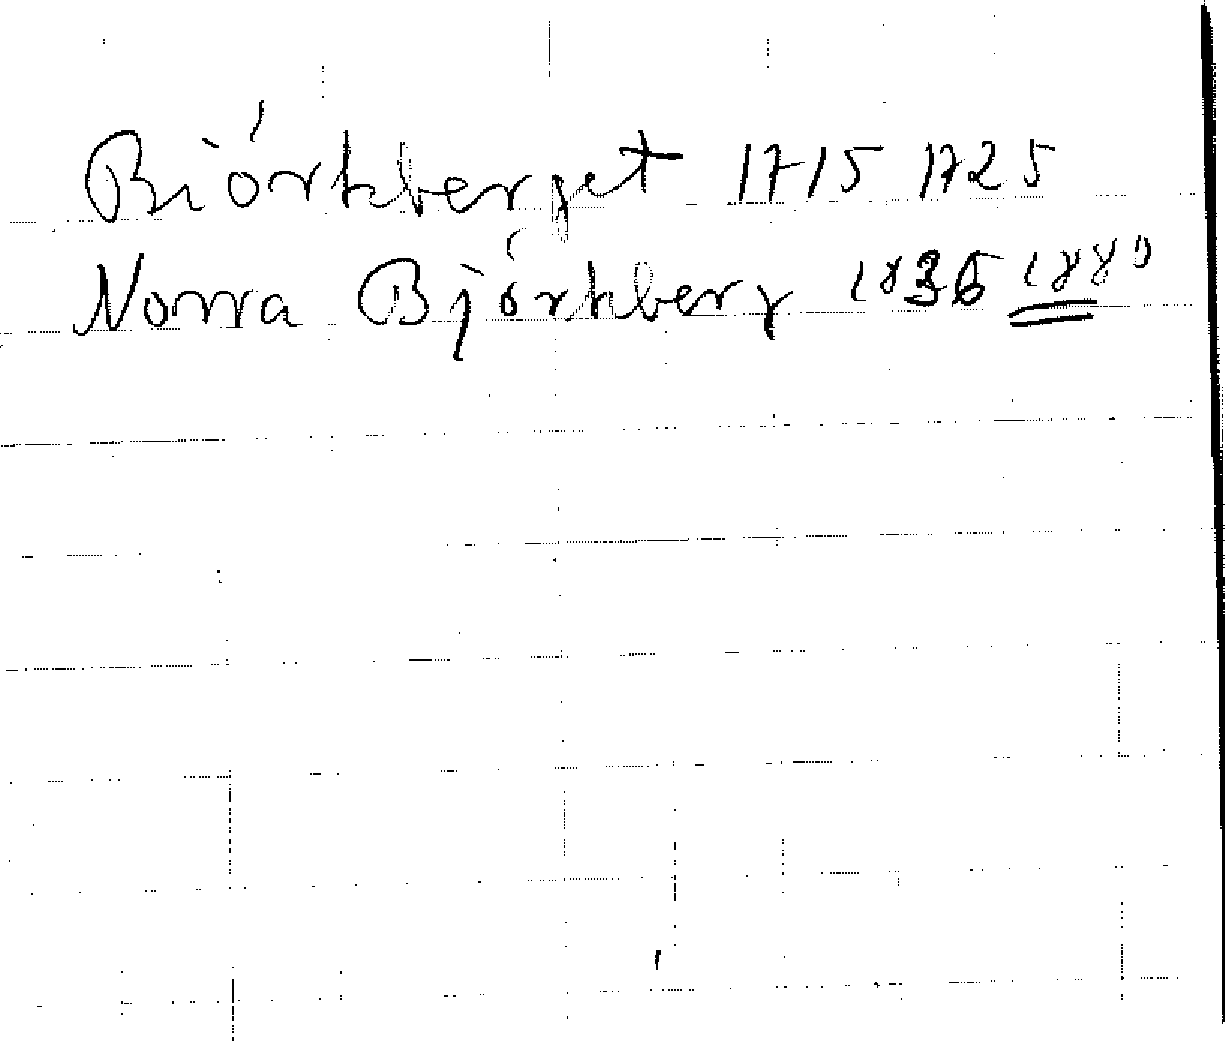 Biörkberget 1715 1725
Norra Björkberg 1836 1880